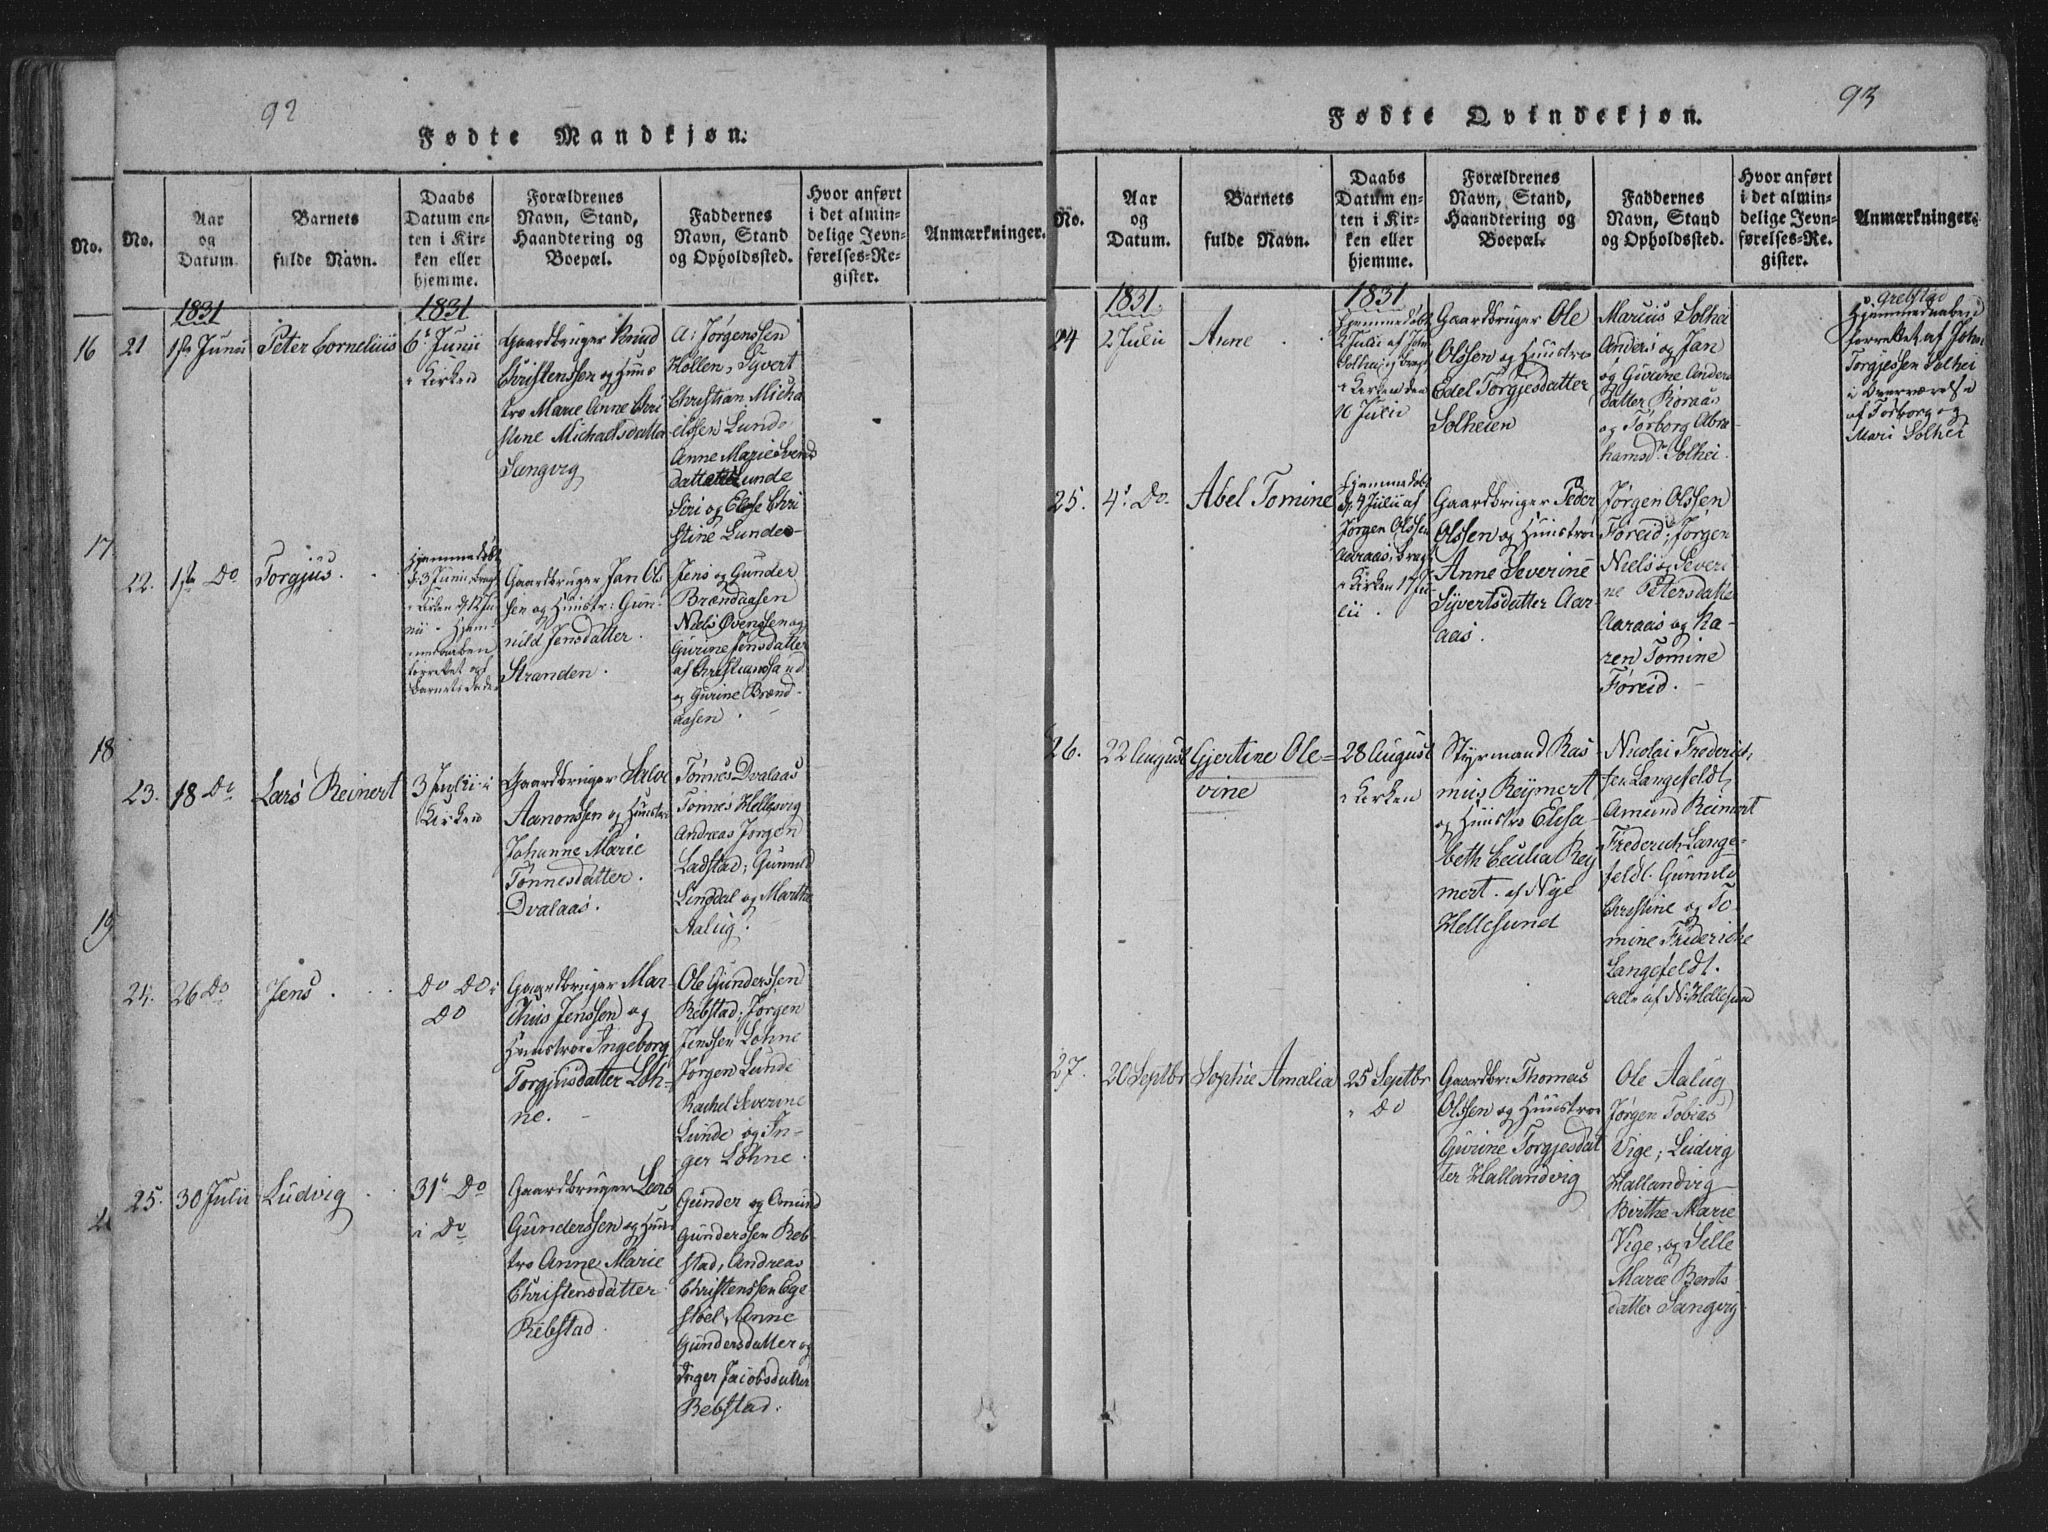 92
Fødte Mandkjøn.
No.
No.
Aar
og
Datum.
Barnets
fulde Navn.
Daabs
Datum en-
ten i Kir-
ken eller
hjemme.
Forældrenes
Navn, Stand,
Haandtering og
Boepæl.
Faddernes
Navn, Stand
og Opholdssted.
Hvor anført
i det almin-
delige Jevn-
førelses-Re-
gister.
Anmærkninger.
16
17
18
19
1831
1831
21
1ste Junii
Peter Cornelius
6te Junii
i Kirken
Gaardbruger Knud
Christenssen og Huus
tro Marie Anne Chri
stine Michaelsdatter
Langvig
A: Jørgenssen
Hollen, Syvert
Christian Micha
elssen Lunde
Anne Marie Svend
datter Lunde
Siri og Else Chri
stine Lunde
22.
1ste Do
Torgjus
Hjemmedøbt
d: 3 Junii, bragt
i Kirken
nii - Hjem-
medaaben
forrettet af
Barnets Fader
Gaardbruger Jan Ols
sen og Huustr: Gun-
nild Jensdatter
Stranden
Jens og Gunder
Brændaasen
Niels Ovenssen og
Gurine Jensdatter
af Christiansand
og Gurine Brænd-
aasen
23.
18 Do
Lars Reinert
3 Julii i
Kirken
Gaardbruger Salve
Aanonssen og Huustro
Johanne Marie
Tønnesdatter
Dvalaas.
Tønnes Dvalaas
Tønnes Hellesvig
Andreas Jørgen
Ladstad; Gunnild
Linddal og Marthe
Aalug.
24.
26 Do
Jens
Do Do i
Do
Gaardbruger Mar-
thus Jenssen og
Huustroe Ingeborg
Torgjusdatter Løh-
ne.
Ole Gunderssen
Rebstad; Jørgen
Jenssen Løhne
Jørgen Lunde
Rachel Severine
Lunde og In-
ger Løhne.
25.
30 Julii
Ludvig
31te Do
i Do
Gaardbruger Lars
Gunderssen og Huus
tro Anne Marie
Christensdatter
Rebstad
Gunder og Omund
Gunderssen Reb-
stad, Andreas
Christenssen Ege
støel, Anne
Gundersdatter og
Inger Jacobsdatter
Rebstad.
93
Fødte Qvindekjøn.
No.
Aar
og
Datum.
Barnets
fulde Navn.
Daabs
Datum en-
ten i Kir-
ken eller
hjemme.
Forældrenes
Navn, Stand,
Haandtering og
Boepæl.
Faddernes
Navn, Stand
og Opholdssted.
Hvor anført
i det almin-
delige Jevn-
førelses-Re-
gister.
Anmærkninger.
1831
1831
24
2 Julii
Anne
Hjemmedøbt
2 Julii af John
Solhei og bragt
i Kirken den
10 Julii
Gaardbruger Ole
Olssen og Huustroe
Edel Torgjesdatter
Solheien
Marius Solhei
Anders og Jan
og Gurine Anders
datter Roraas
og Torborg Abra-
hamsdr. Solhei.
Hjemmedaaben
forrettet af John
Torgjessen Solhei
i Overværelse
af Torborg og
Mari Solhei
25.
4de Do
Abel Tomine
Hjemmedøbt
d. 4 Julii af
Jørgen Olssen
Aaraas, bragt
i Kirken 17 Ju
lii.
Gaardbruger Peder
Olssen og Huustroe
Anne Severine
Syvertsdatter Aar-
aas.
Jørgen Olssen
Føreid; Jørgen
Niels og Severi
ne Petersdatter
Aaraas og Ka-
ren Tomine
Føreid.
26.
22 August
Gjertine Ole-
vine
28 August
i Kirken
Styrmand Ras
mus Reymert
og Huustro Elisa
beth Cecilia Rey
mert. af Nye
Hellesund
Nicolai Frederich
sen Langefeldt
Amund Reinert
Frederich Lange-
feldt. Gunnild
Christine og To
mine Frideriche
Langefeldt.
alle af N: Hellesund
27.
20 Septbr
Sophie Amalia
25 Septbr
i Do
Gaardbr: Thomas
Olssen og Huustroe
Gurine Torgjesdat
ter Hallandvig
Ole Aalug
Jørgen Tobias
Vige; Ludvig
Hallandvig
Birthe Marie
Vige, og Sille
Marie Bents
datter Langvig